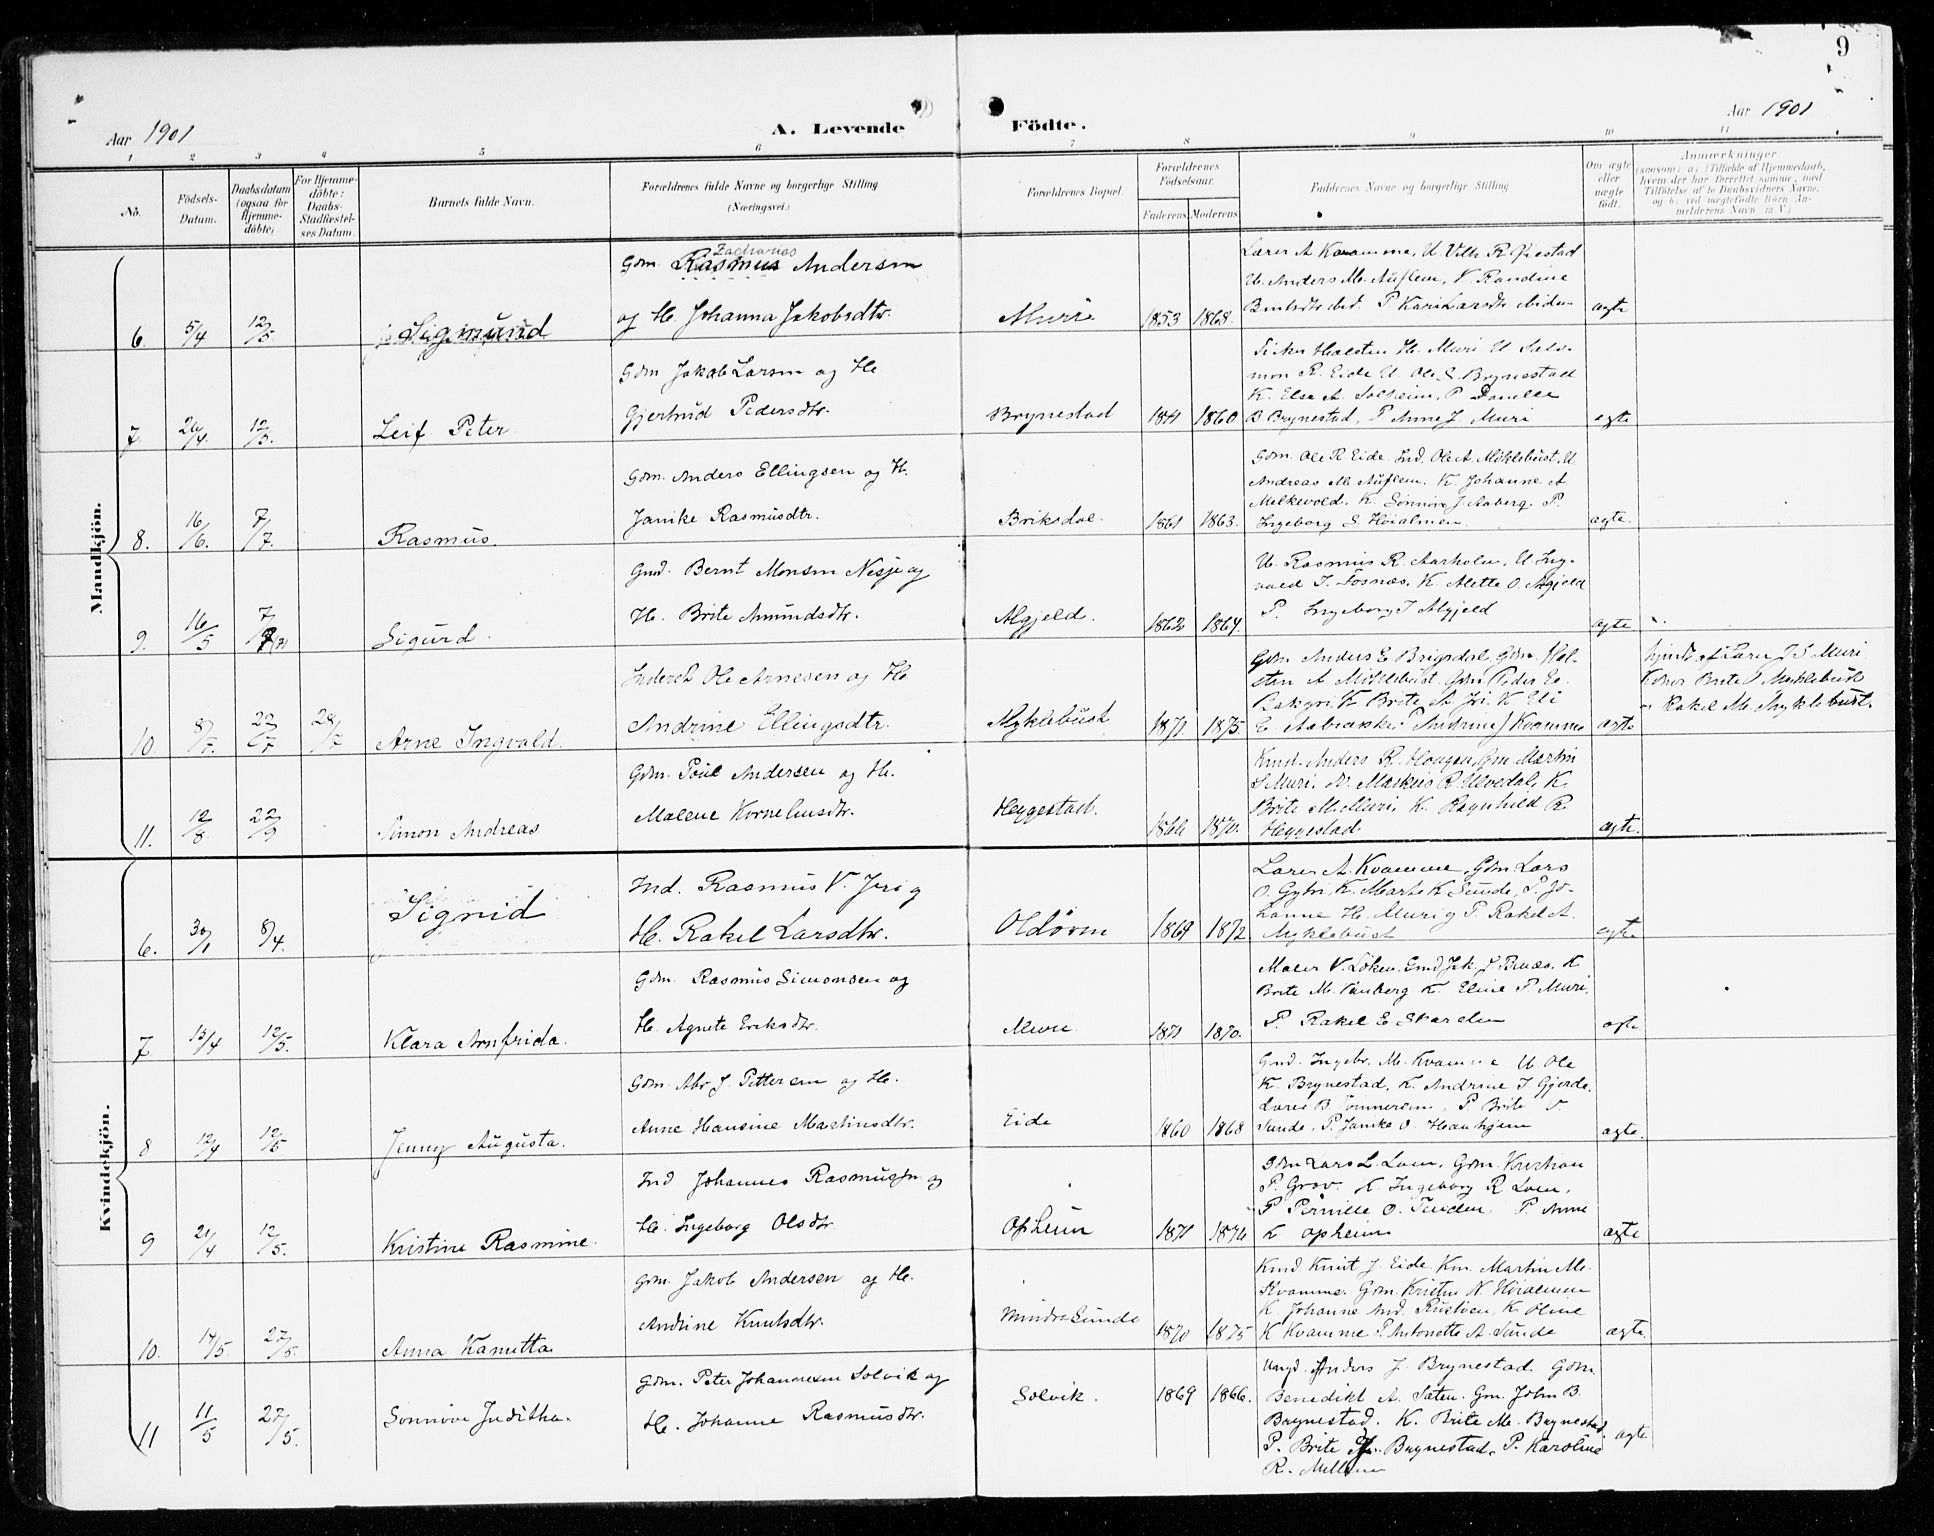 9
Aar 1901
A. Levende
Födte.
Aar 1901
1 2 3 4 5 6 7 8 9 10 11
No.
Födsels-Datum.
Daabsdatum (ogsaa for Hjemme-döbte)
For Hjemme-döbte: Daabs-Stadfæstel-ses Datum.
Barnets fulde Navn.
Forældrenes fulde Navne og borgerlige Stilling (Næringsvei.)
Forældrenes Bopæl.
Forældrenes Födselsaar.
Faderens Moderens
Faddernes Navne og borgerlige Stilling.
Om ægte eller uægte födt.
Anmærkninger
(saasom: a) i Tilfælde af Hjemmedaab,
hvem der har forrettet samme, med
Tilföielse af to Daabsvidners Navne,
og b) ved uægtefödte Börn An-
melderens Navn m V.)
Mandkjön.
6. 5/4 12/5 Sigmund
Gdm. Rasmus Zacharias Andersen
og H. Johanna Jakobsdtr.
Muri 1853 1868.
Lærer A Kvamme, U. Vilh. R.
U. Anders M. Auflem, V. Randine
P Kari Larsdtr
ægte
7 26/4 12/5 Leif Peter
Gdm Jakob Larsen og H
Gjertrud Pedersdtr.
Brynestad 1860
Halsten H. Muri U Salo-
mon R. Eide U. Ole S. Brynestad
K. Else A. Solheim, P Pernille
B Brynestad, P Anne J. Muri
ægte
8. 16/6. 7/7. Rasmus.
Gdm. Anders Ellingsen og H.
Janike Rasmusdtr.
Briksdal. 1861 1863.
Gdm. Ole R. Eide. Ind. Ole A. Myklebust, U
Andreas M. Auflem. K Johanne A
Melkevold. K. Sønnøv J. Aaberg. P.
Ingeborg S. Høialmen.
ægte.
9. 16/5 7/7 Sigurd.
Gmd. Bernt Monsen Nesje og
H. Brite Amundsdtr.
Algjeld. 1862 1864.
U. Rasmus R. Aarholen, U. Ing-
vald I. Fosnæs, K. Alette O. Algjeld
P. Ingeborg I Algjeld
ægte.
10 8/7. 22/7 28/7 Arne Ingvald.
Inderst Ole Arnesen og H
Andrine Ellingsdtr.
Myklebust 1871 1875.
Gdm Anders E Brigsdal, Gdm. Hal-
sten A Myklebust Gdm Peder E.
K Brite A Jri. K Eli
E Aabrække P Andrine J Kvamme
ægte
hjmdt af Lærer J S Muri
Koner Brite J Myklebust
Rakel M. Myklebust.
11. 12/8 22/9 Simon Andreas
Gdm. Poul Andersen og H.
Malene Kornelius dtr.
Heggestad. 1866 1870.
Anders R. Haugen, Gm Martin
S Muri, U. Markus R. Ulvedal, K
Brite M. Muri, K. Ragnhild R
Heggestad.
ægte.
Kvindekjön.
6. 30/1 8/4. Signid
Ind. Rasmus V. Jri og
H. Rakel Larsdtr.
Oldøren 1869 1872
Lærer A. Kvamme, Gdm Lars
O. Gytri K. Marte K Sunde, P. Jo-
hanne H. Muri og P. Rakel A.
Myklebust
ægte
7 13/4 12/5. Klara Arnfrida.
Gdm. Rasmus Simonsen og
H. Agnete Eriksdtr.
Muri. 1871 1870.
Maler V. Løken, Gmd Jak. J. Bruæs. K
Brite M. K. Eline P Muri,
P. Rakel E
ægte
8 12/4 12/5 Jenny Augusta.
Gdm. Abr J. Pettersen og H.
Anne Hansine Martinsdtr.
Eide 1860 1868
Gmd. Ingebr. M. Kvamme U Ole
K. Brynestad, K. Andrine I Gjerde.
Lærer B. P Brite V
Sunde, P. Janike O.
ægte.
9 21/4 12/5. Kristine Rasmine.
Ind Johannes Rasmusen og
H. Ingeborg Olsdtr.
Opheim 1871 1876
Gdm Lars L. Loen, Gdm. Kristian
P. Grov. K. Ingeborg R Loen,
P Pernille O. Tenden. P Anne
K Opheim
ægte
10. 14/5 27/5 Anna Kamitta
Gdm. Jakob Andersen og H.
Andrine Knutsdtr.
Mindre Sunde 1870 1875
Kmd Knut J. Eide Km. Martin M.
Kvamme. Gdm. Kristen N. Høialmen
K. Johanne And. K. Oline
K Kvamme P. Antonette A. Sunde
ægte
11 11/5 27/5. Sønnøve Juditha.
Gdm. Peter Johannesen Solvik og
H. Johanne Rasmusdtr.
Solvik. 1869 1866.
Ungd. Anders J. Brynestad Gdm.
Benedikt A. Sæten. Gm. John B.
Brynestad. K. Brite M. Brynestad.
P. Brite Brynestad, P. Karoline
R.
ægte